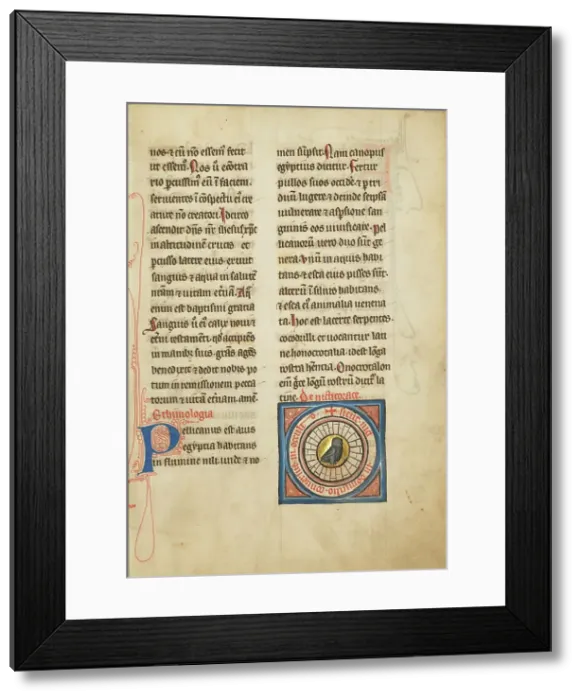 nos ⁊ cū nō essem fecit
ut essem. Nos ū ecōtra
rio ꝑcussim᷒ eū ī faciem.
seruientes ī cōspectu ei᷒ cre
ature nō creatori. Idcirco
ascendit dn̄s nr̄
in altitudinē crucis et
ꝑcusso latere eius. exiuit
sanguis ⁊ aqua in salutē
nr̄am ⁊ uitam et̄nā. Aq̄
enim est baptismi gratia
Sanguis ū ei᷒ calix noui ⁊
et̄ni testam̄ti. accipiēs
in manib᷒ suis. gr̄as agēs
benedixit ⁊ dedit nobis po
tum in remissionem pecca
torum ⁊ uitā et̄nam. amē.
Ethimologia
Pellicanus est auis
egyptia habitans
in flumine nili. unde ⁊ no
men sūpsit. Nam canopus
egyptus dicitur. Fertur
pullos suos occidē. ⁊ ꝑ tri
duū lugere ⁊ deinde seipsū
uulnerare ⁊ aspsione san
guinis eos uiuificare. Pel
licanorū uero duo sūt ge
nera. Vnū in aquis habi
tans ⁊ esca eius pisces sūt.
alterū ī siluis habitans
⁊ esca ei᷒ animalia uenena
ta. Hoc est lacerte serpentes.
cocodrilli ⁊ uocantur lati
ne honocrotalia. idest lōga
rostra hentia. Onocrotalon
enim gr̄ce lōgū rostrū dicit᷒ la
tine. De nicticorace.